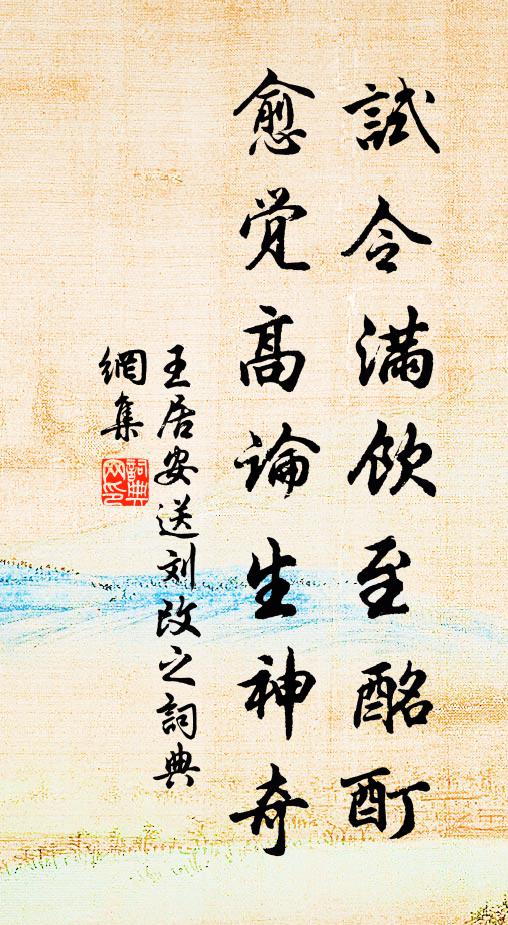 試令滿飲至酩酊
愈覚高論生神奇
王居安送刘改之詞典
網集
詞典
网印